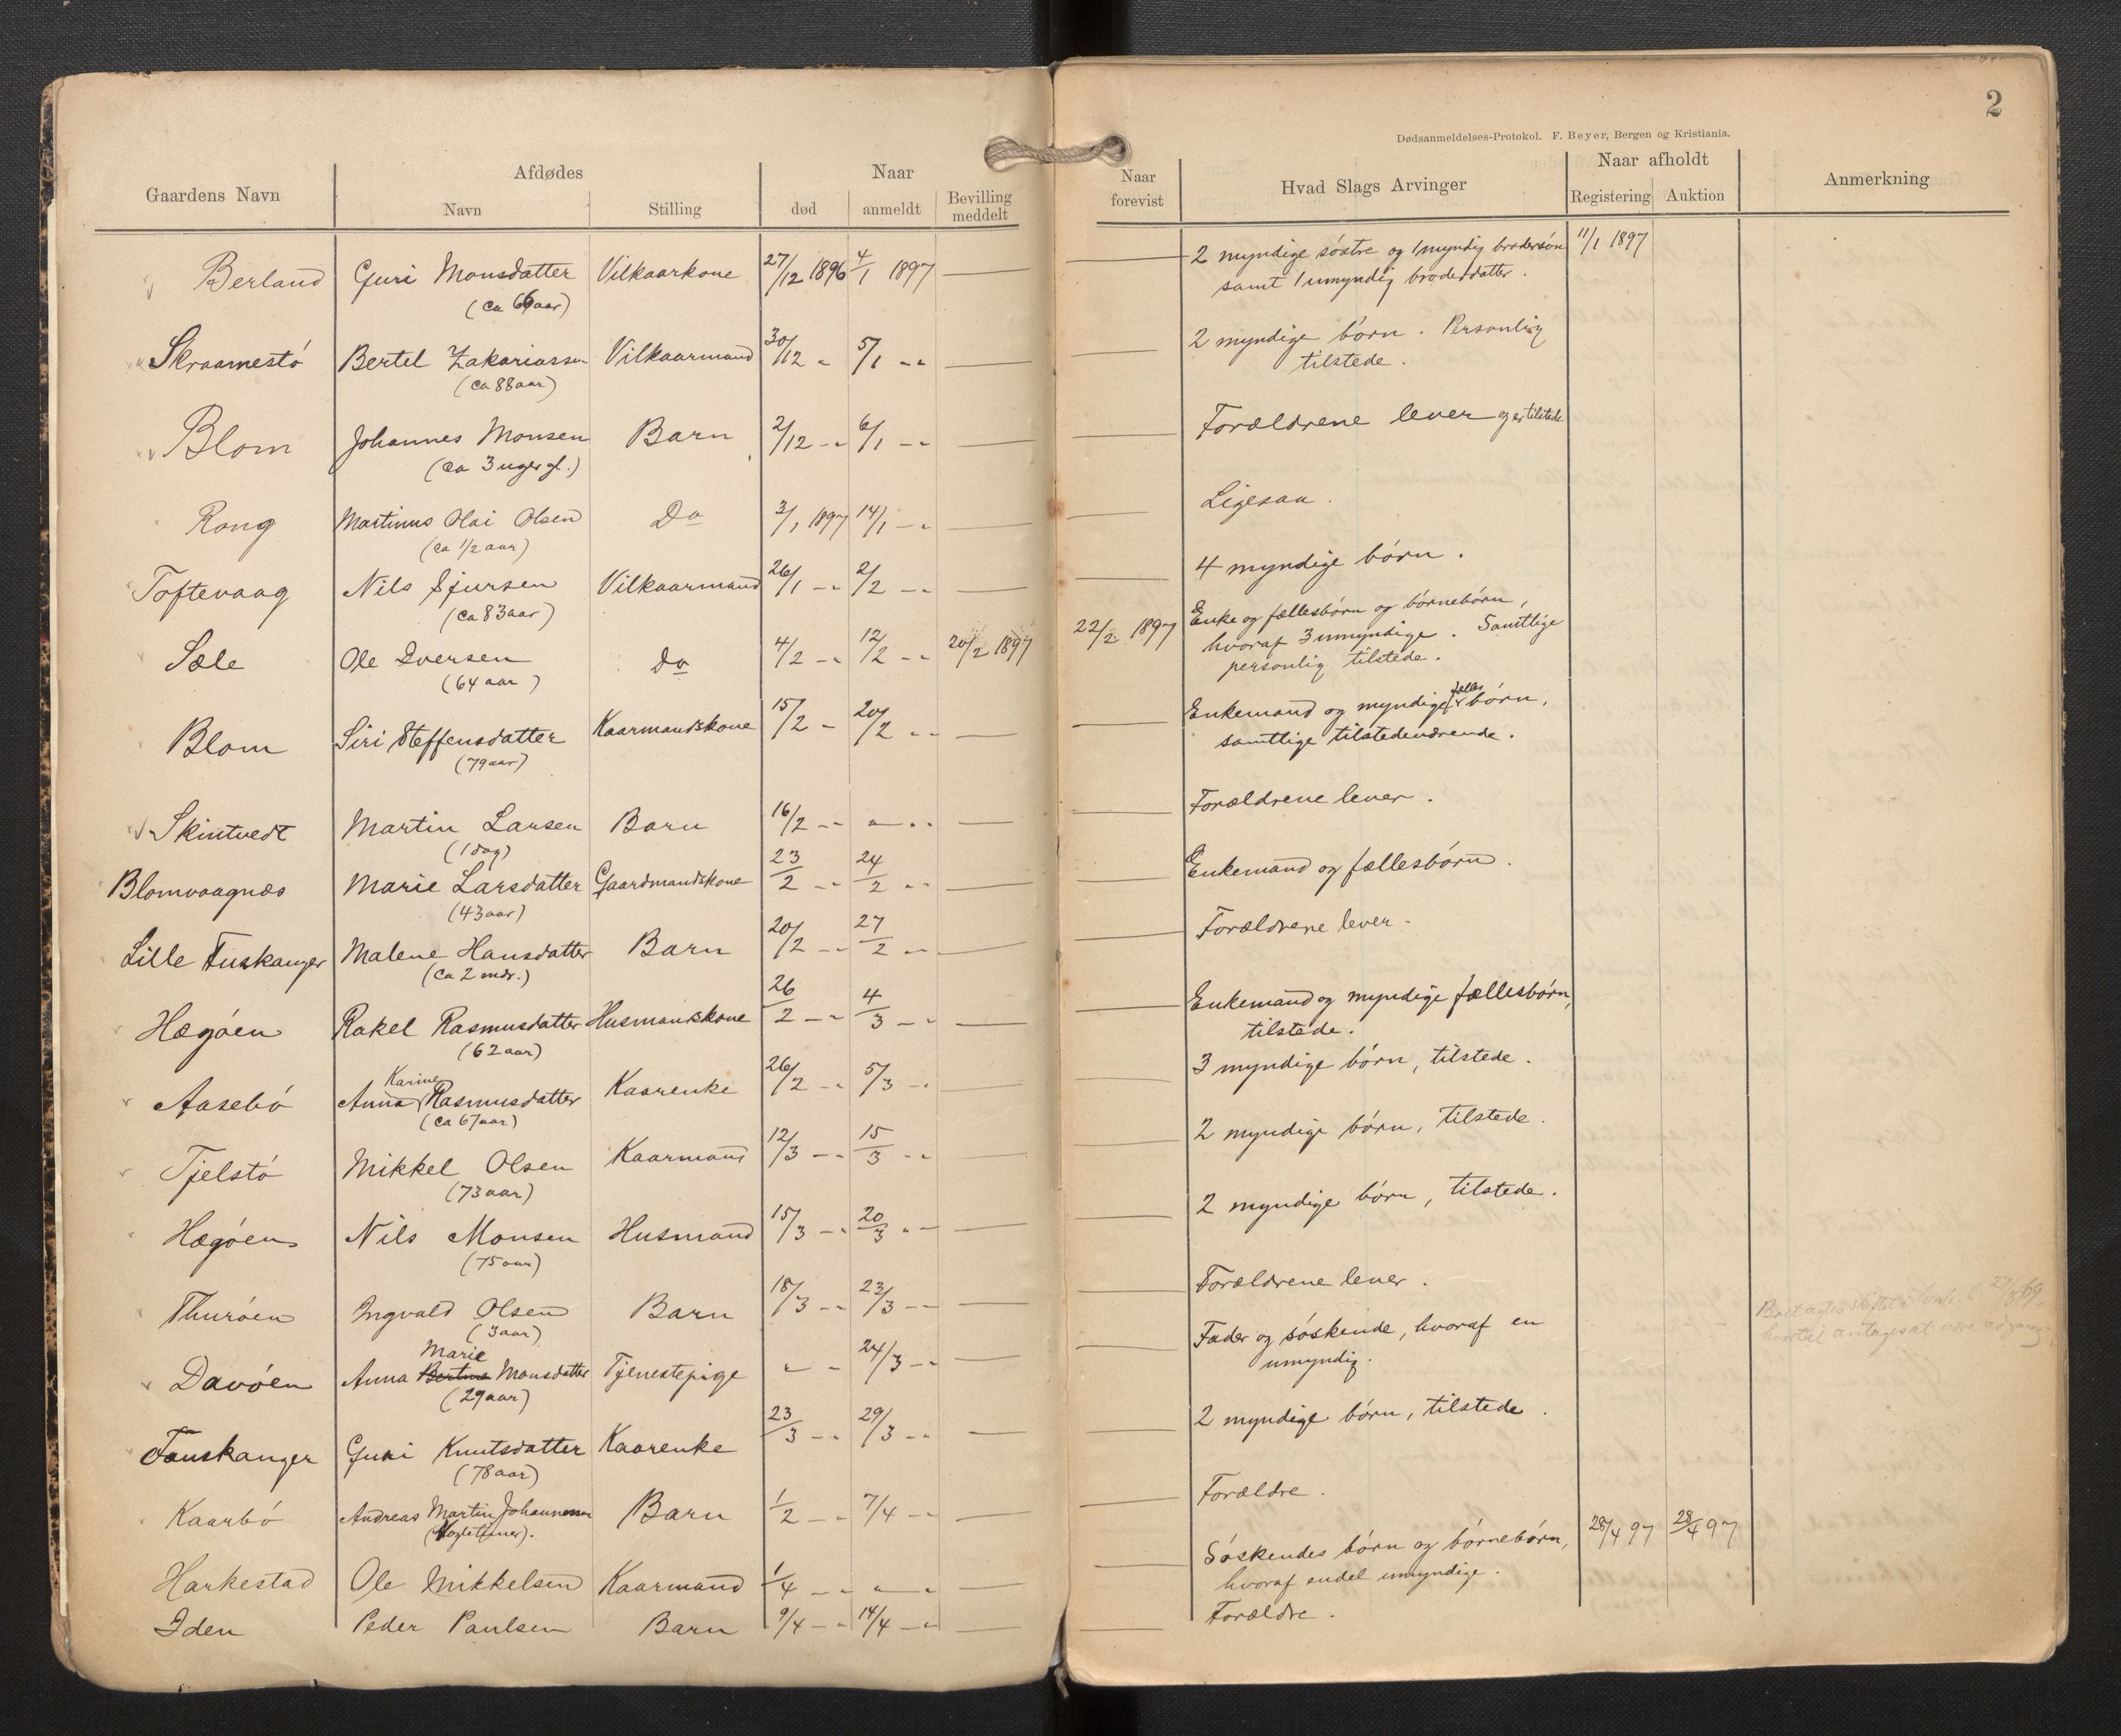 2
Dødsanmeldelses-Protokol. F. Beyer, Bergen og Kristiania.
Gaardens Navn
Afdødes
Navn
Stilling
Naar
død
anmeldt
Bevilling meddelt
Naar forevist
Hvad Slags Arvinger
Naar afholdt
Registering
Auktion
Anmerkning
Berland Guri Monsdatter Vilkaarkone 27/12 1896 4/1 1897 — — 2 myndige søstre og 1 myndig brodersøn 11/1 1897
(ca 66 aar) samt 1 umyndig broderdatter.
Skraamestø Bertel Zakariassen Vilkaarmand 30/12 " 5/1 -" — 2 myndige børn. Personlig
(ca 88 aar) tilstede.
Blom Johannes Monsen Barn 2/12 -" 6/1 -" — — Forældrene lever og er tilstede
(ca 3 uger gl.)
Rong Martinus Olai Olsen Do 3/1 1897 14/1 -" — — Ligesaa.
(ca 1/2 aar)
Toftevaag Nils Sjursen Vilkaarmand 26/1 -" 2/2 -" — — 4 myndige børn.
(ca 83 aar)
Sæle Ole Iversen Do 4/2 -" 12/2 -" 20/2 1897 22/2 1897 Enke og fællesbørn og børnebørn,
(64 aar) hvoraf 3 umyndige. Samtlige
personlig tilstede.
Blom Siri Steffensdatter Kaarmandskone 15/2 - 20/2 -" — — Enkemand og myndige fælles børn,
(79 aar) samtlige tilstedeværende.
Skintvedt Martin Larsen Barn 16/2 -" " -" — — Forældrene lever.
(1 dag)
Blomvaagnæs Marie Larsdatter Gaardmandskone 23/2 -" 24/2 -" — — Enkemand og fællesbørn.
(43 aar)
Lille Fuskanger Malene Hansdatter Barn 20/2 -" 27/2 -" — — Forældrene lever -
(ca 2 mdr.)
Hægøen Rakel Rasmusdatter Husmandskone 26/2 -" 4/3 -" — — Enkemand og myndige fællesbørn,
(62 aar) tilstede.
Aasebø Anna Karine Rasmusdatter Kaarenke 26/2 -" 5/3 -" — — 3 myndige børn, tilstede.
(ca 67 aar)
Tjelstø Mikkel Olsen Kaarmand 12/3 -" 15/3 -" — — 2 myndige børn, tilstede.
(73 aar)
Hægøen Nils Monsen Husmand 15/3 -" 20/3 " - — — 2 myndige børn, tilstede.
(75 aar)
Thurøen Ingvald Olsen Barn 18/3 -" 23/3 -" — — Forældrene lever.
(3 aar)
Davøen Anna Bertine Marie Monsdatter Tjenestepige " - 24/3 -" — — Fader og søskende, hvoraf en
(29 aar) umyndig.
Fauskanger Guri Knutsdatter Kaarenke 23/3 -" 29/3 -" — — 2 myndige børn, tilstede.
(78 aar)
Kaarbø Andreas Martin Johannessen Barn 1/2 -" 7/4 -" — Forældre.
Harkestad Ole Mikkelsen Kaarmand 1/4 -" " - " — — Søskendes børn og børnebørn, 28/4 97 28/4 97
hvoraf endel umyndige.
Iden Peder Paulsen Barn 9/4 -" 14/4 -" — — Forældre.